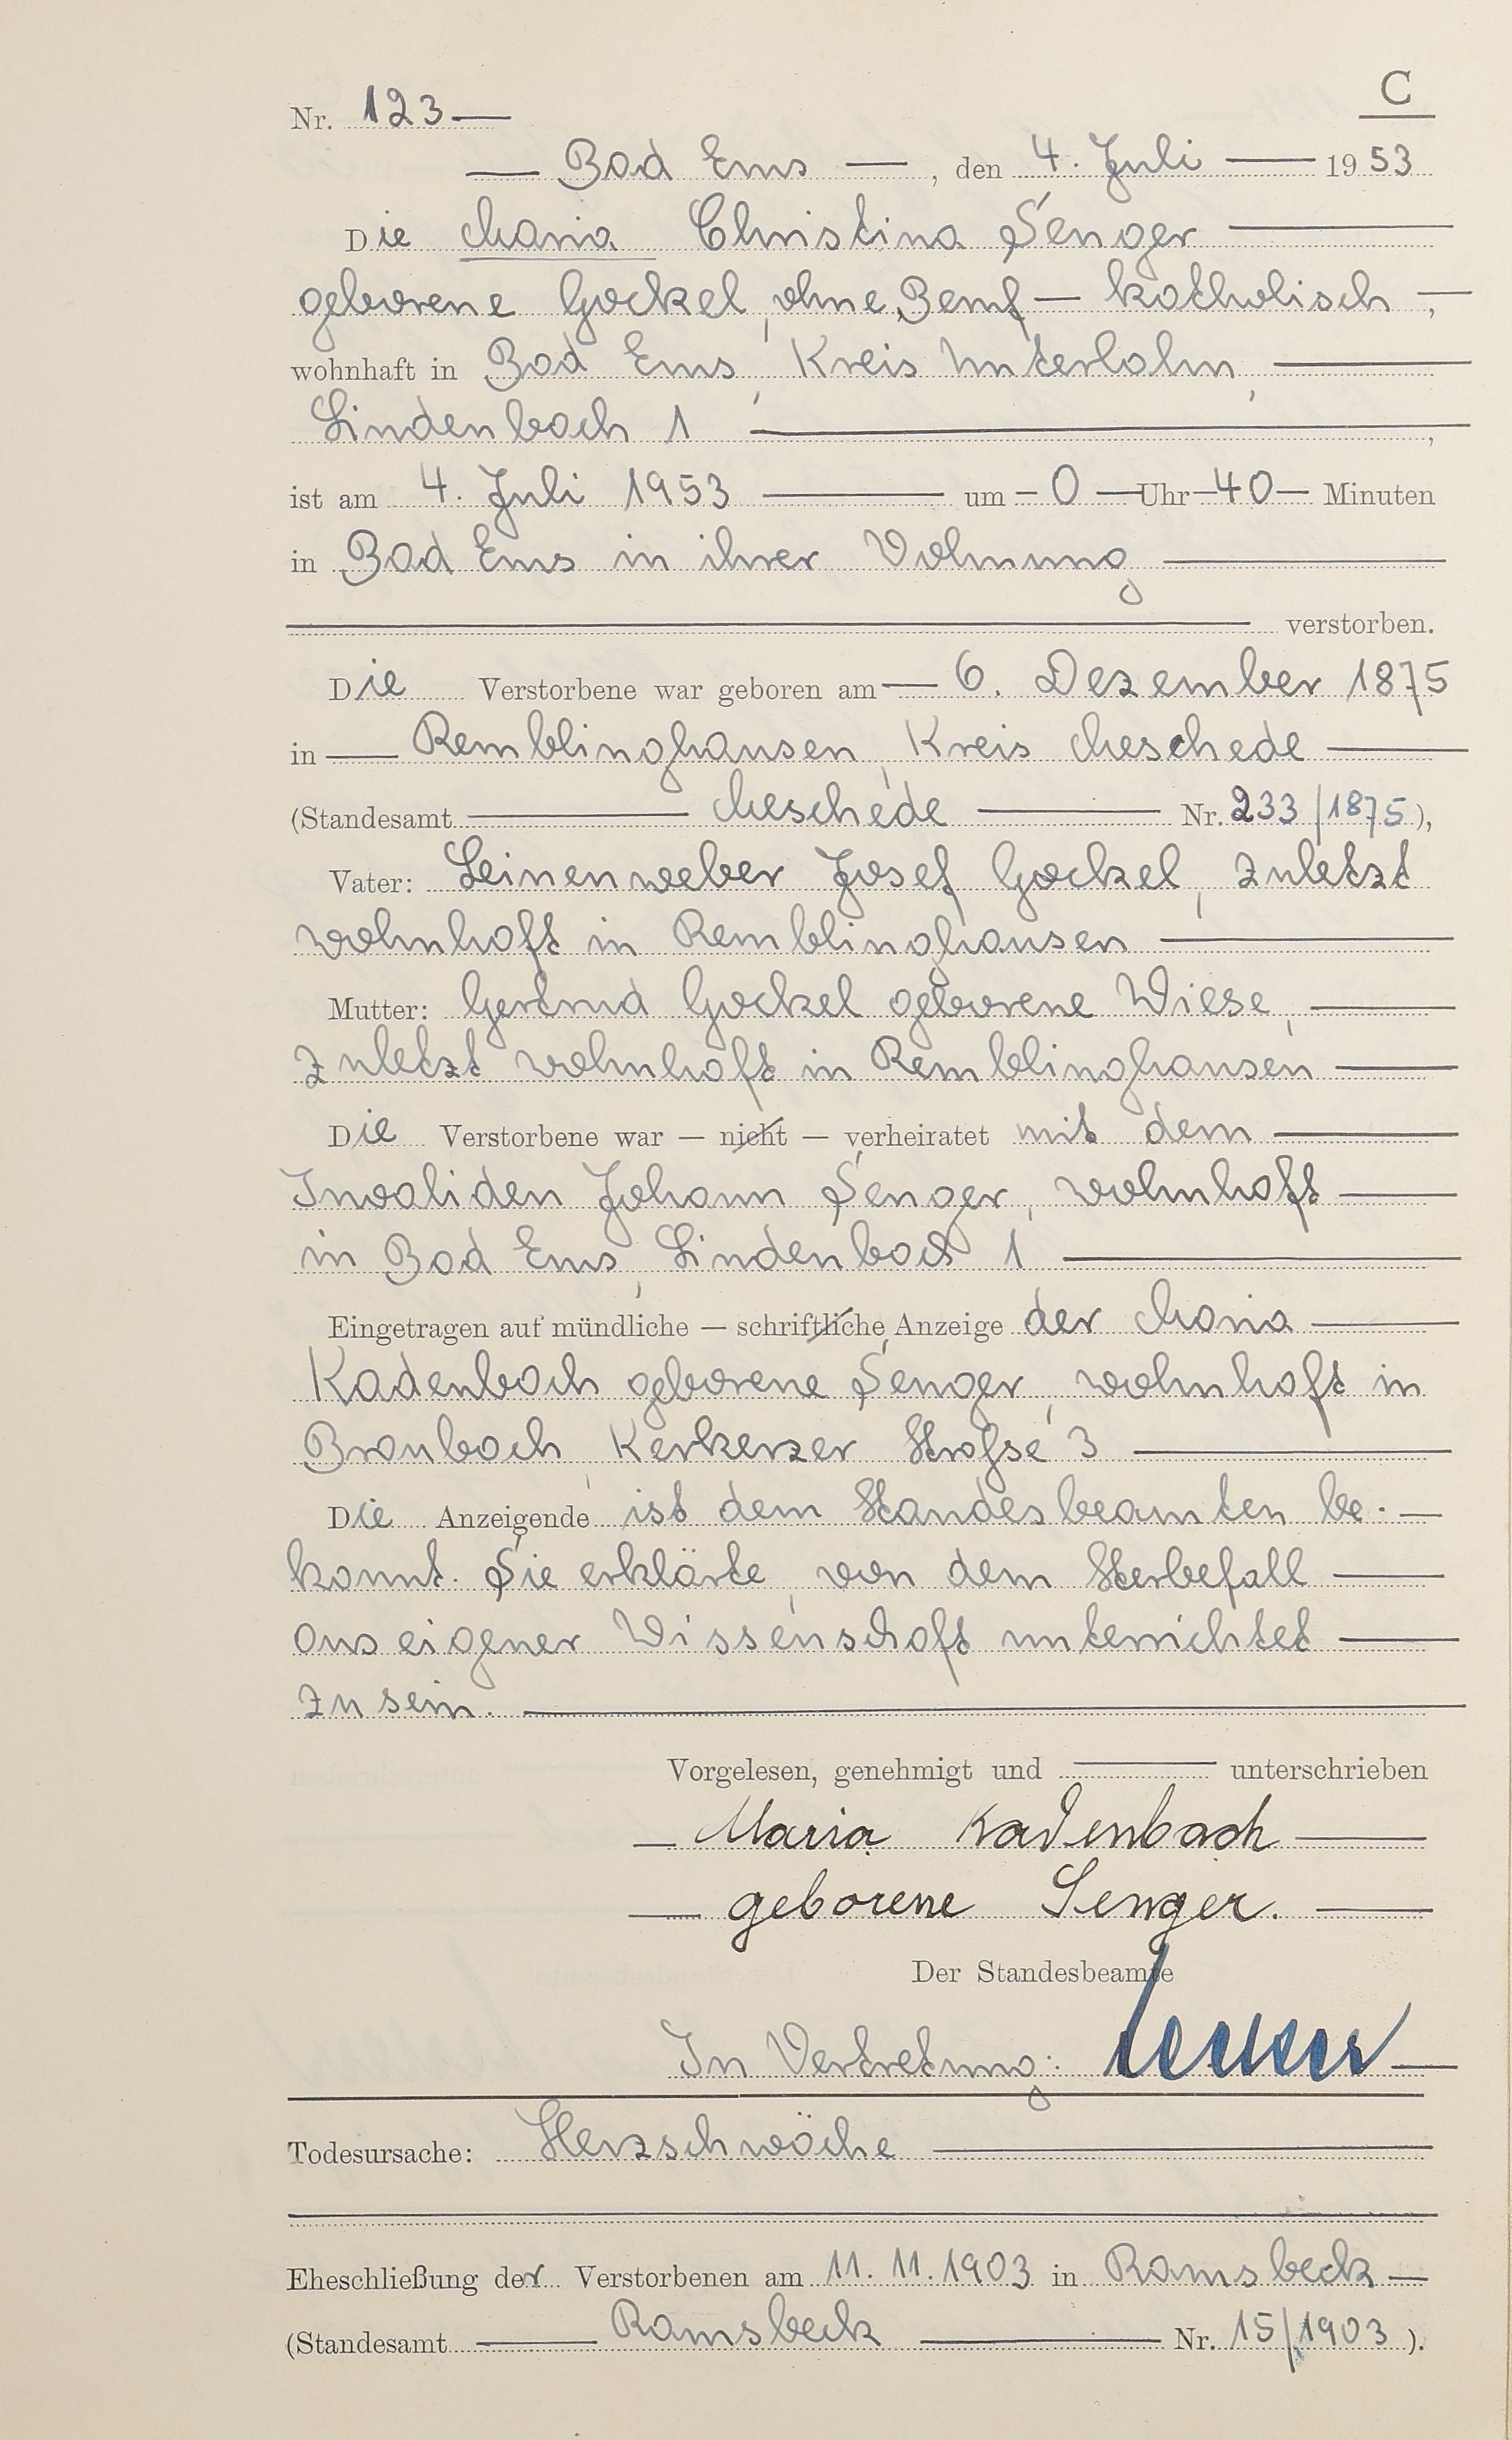 C
Nr. 123
Bad Ems, den 4. Juli 1953
Die Maria Christina Senger
geborene Gockel, ohne Beruf — katholisch,
wohnhaft in Bad Ems, Kreis Unterlahn,
Lindenbach 1,
ist am 4. Juli 1953 um 0 Uhr 40 Minuten
in Bad Ems in ihrer Wohnung
verstorben.
Die Verstorbene war geboren am 6. Dezember 1875
in Remblinghausen, Kreis Meschede
(Standesamt Meschede Nr. 233/1875),
Vater: Leinenweber Josef Gockel, zuletzt
wohnhaft in Remblinghausen
Mutter: Gertrud Gockel geborene Wiese,
zuletzt wohnhaft in Remblinghausen
Die Verstorbene war — nicht — verheiratet mit dem
Invaliden Johann Senger, wohnhaft
in Bad Ems, Lindenbach 1
Eingetragen auf mündliche — schriftliche Anzeige der Maria
Kadenbach geborene Senger, wohnhaft in
Braubach, Kerkerzer Strasse 3
Die Anzeigende ist dem Standesbeamten be-
kannt. Sie erklärte, von dem Sterbefall
aus eigener Wissenschaft unterrichtet
zu sein.
Vorgelesen, genehmigt und unterschrieben
Maria Kadenbach
geborene Senger.
Der Standesbeamte
In Vertretung:
Todesursache: Herzschwäche
Eheschließung der Verstorbenen am 11. 11. 1903 in Ramsbeck
(Standesamt Ramsbeck Nr. 15/1903).